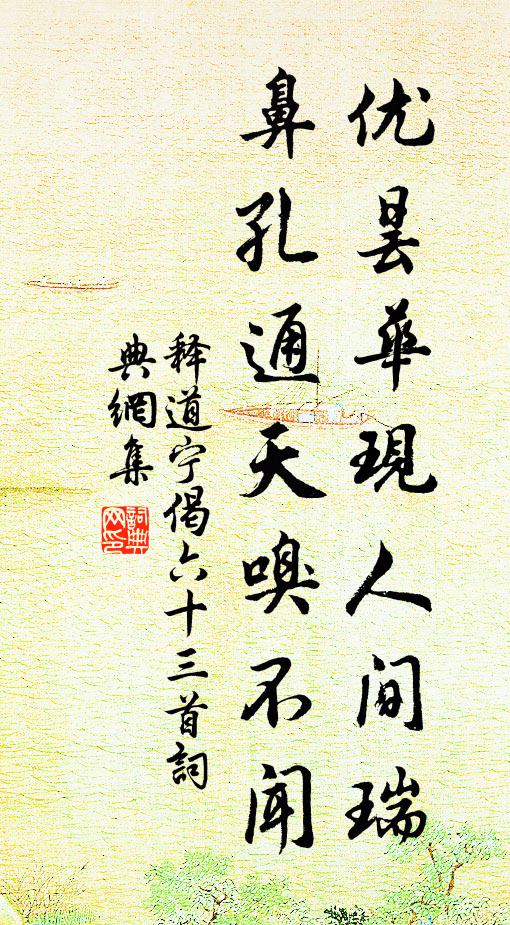 优昙华現人间瑞
鼻孔通天嗅不闻
释道宁偈六十三首詞
典網集
詞典
网印